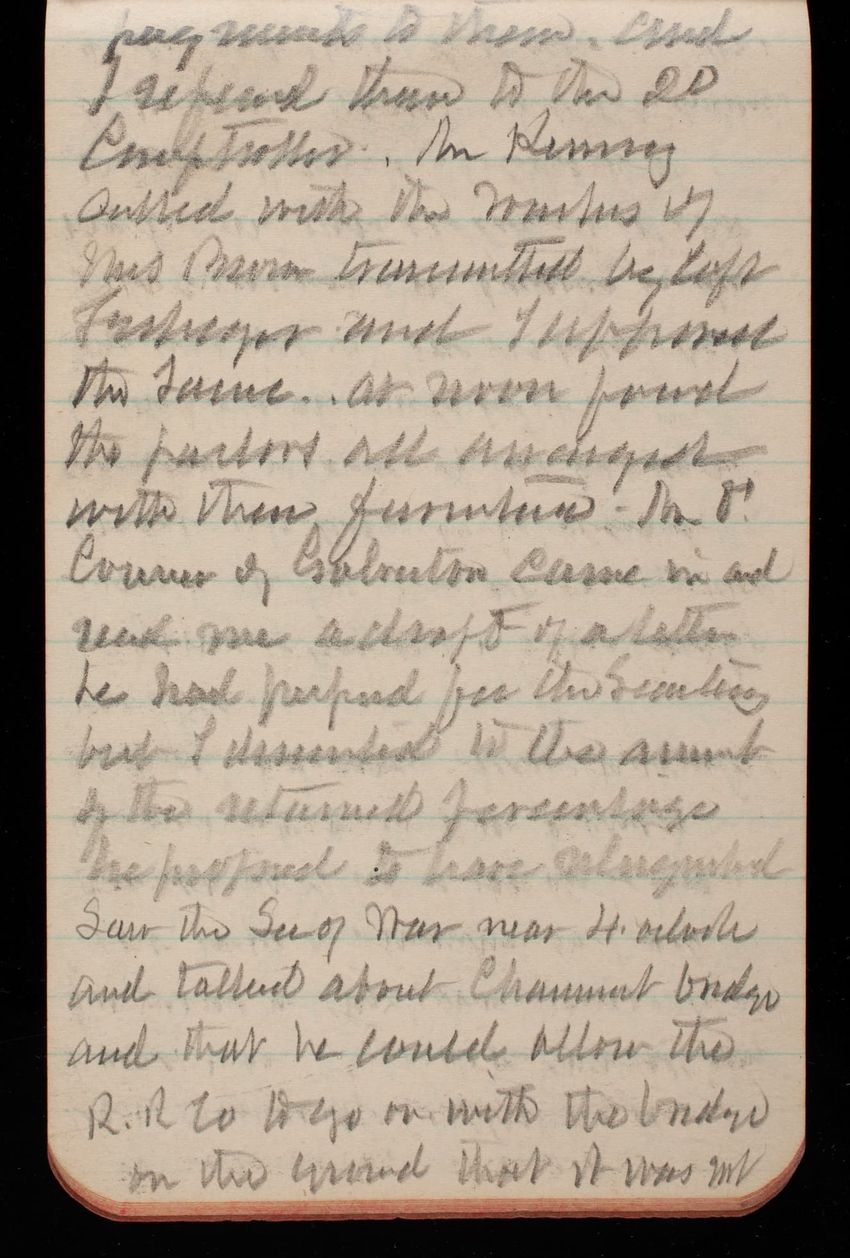 payments to them. and
I refered them to the 2D
Comptroller. Mr Kenney
called with the of
this transmitted by Capt
and I approved
the same.. at noon found
the parlors all arranged
with their furniture - Mr O'
Connor of Galveston came in and
read me a draft of a letter
he had prepared for the Secretary
but I dissented to the amount
of the returned percentage
he proposed to have relinquished
Saw the Sec of War near 4. oclock
and talked about bridge
and that he could allow the
R. R Co to go on with the bridge
on the ground that it was not